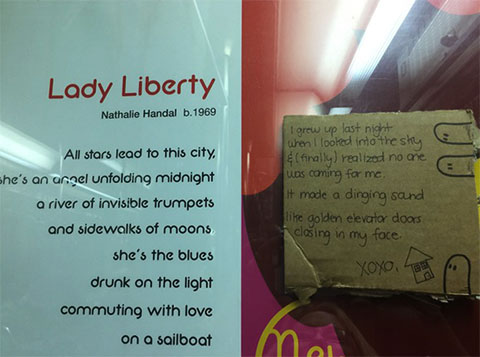 Lady Liberty
Nathalie Handal b.1969
All stars lead to this city,
she's an angel unfolding midnight
a river of invisible trumpets
and sidewalks of moons
she's the blues
drunk on the light
commuting with love
on a sailboat
I grew up last night
when I looked into the sky
& (finally) realized no one
was coming for me.
It made a dinging sound
like golden elevator doors
closing in my face.
XOXO,